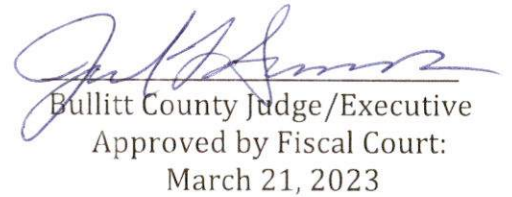 Bullitt County Judge/Executive
Approved by Fiscal Court:
March 21, 2023